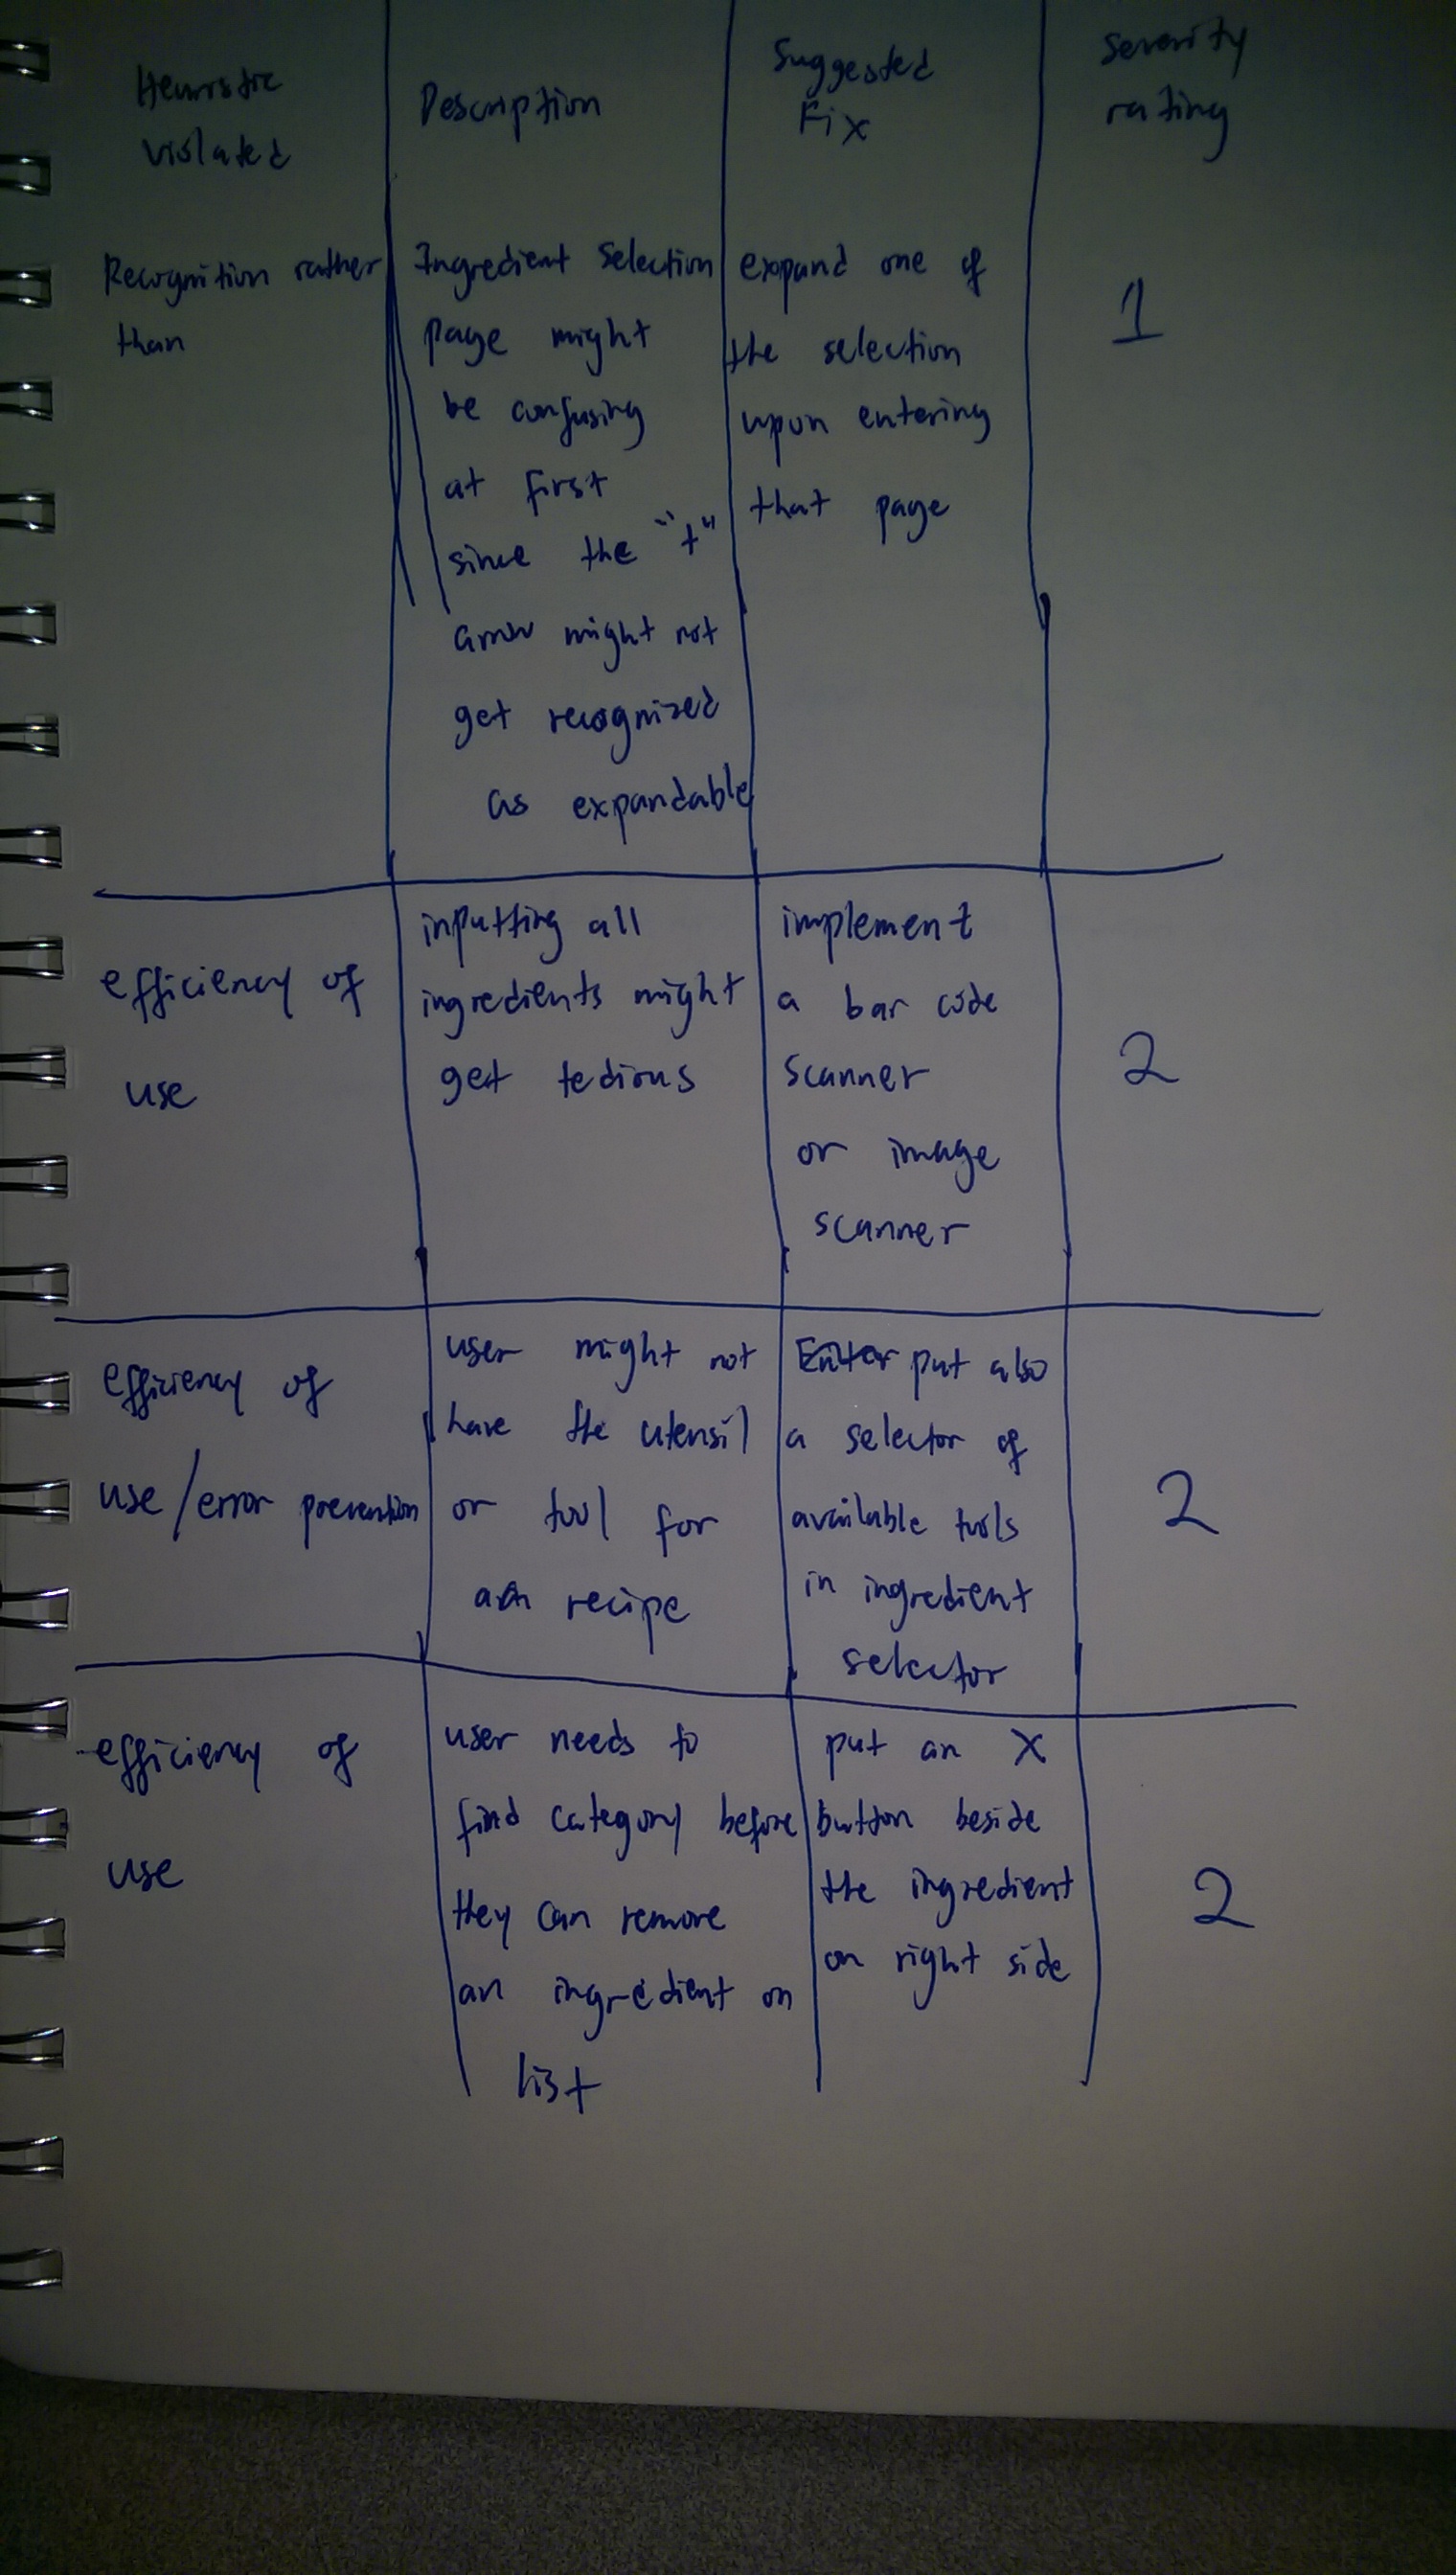 Heuristic
violated
Description
Suggested
Fix
Severity
rating
Recognition rather
than
Ingredient Selection
page might
be confusing
at first
since the "+"
arrow might not
get recognized
as expandable
expand one of
the selection
upon entering
that page
1
efficiency of
use
inputting all
ingredients might
get tedious
implement
a bar code
scanner
or image
scanner
2
efficiency of
use/error prevention
user might not
have the utensil
or tool for
recipe
put also
a selector of
available tools
in ingredient
selector
2
efficiency of
use
user needs to
find category before
they can remove
an ingredient on
list
put an X
button beside
the ingredient
on right side
2